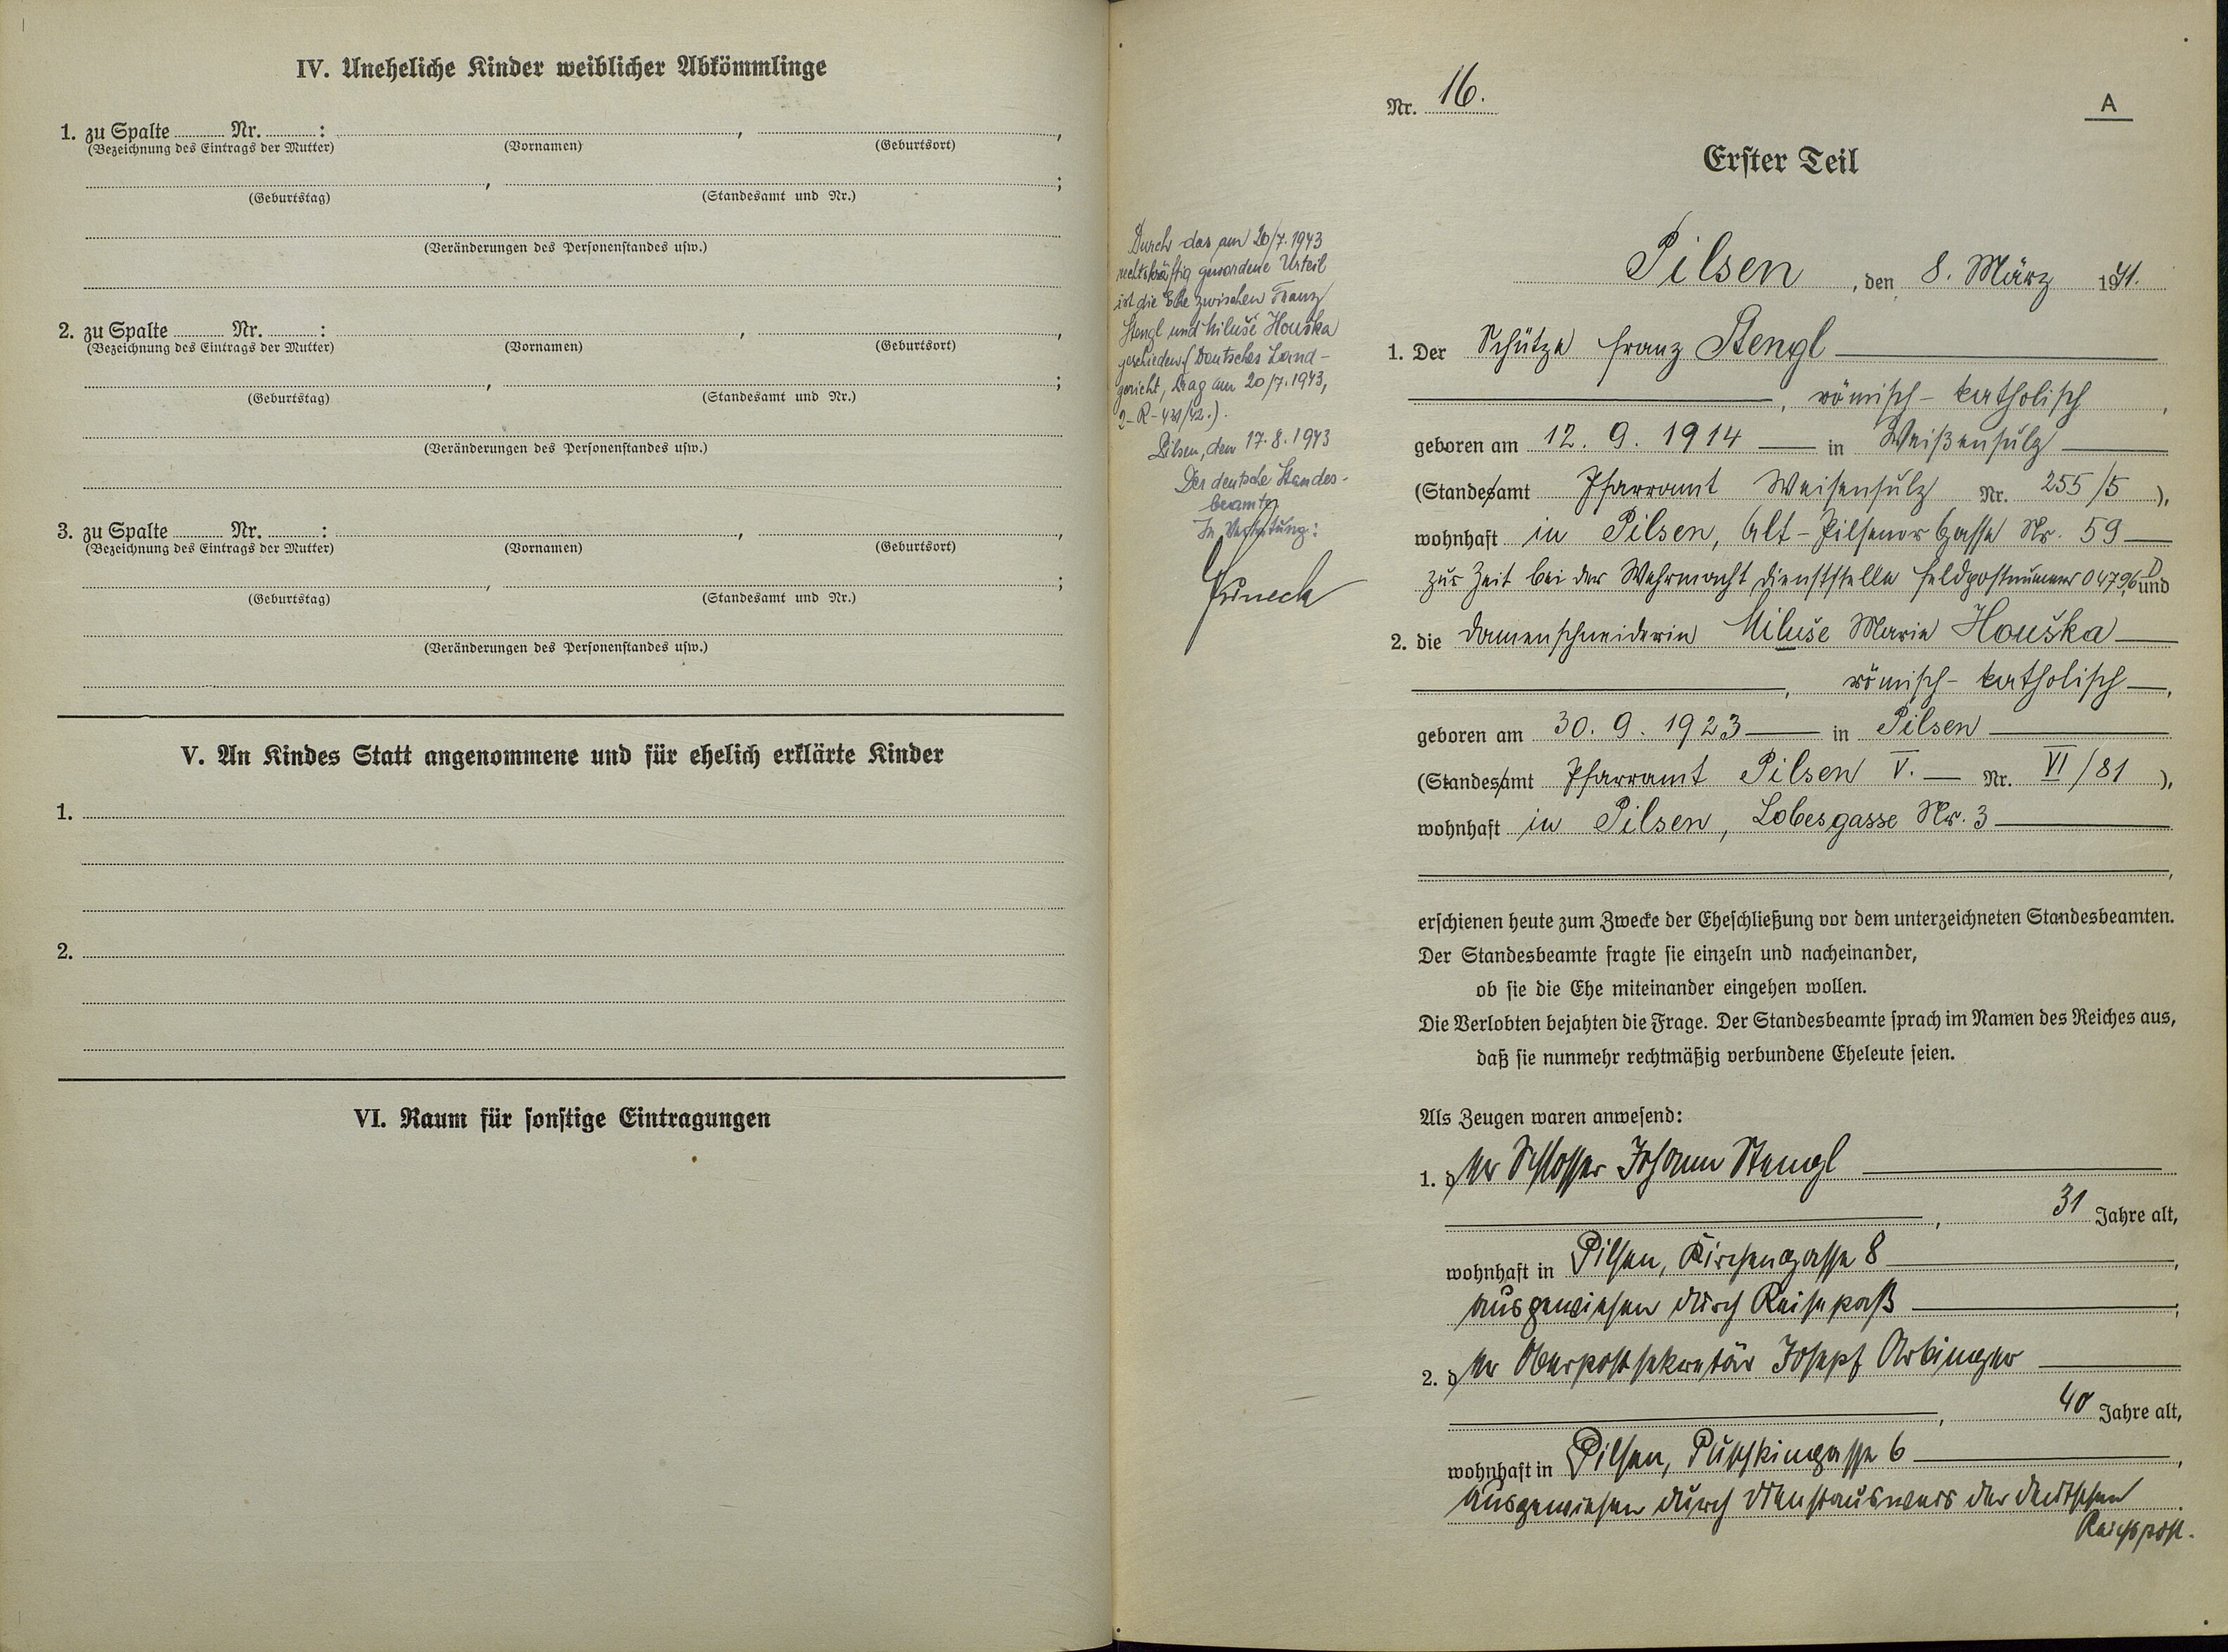 IV. Uneheliche Kinder weiblicher Abkömmlinge
1. zu Spalte Nr. : , ,
(Bezeichnung des Eintrags der Mutter) (Vornamen) (Geburtsort)
, ;
(Geburtstag) (Standesamt und Nr.)
(Veränderungen des Personenstandes usw.)
2. zu Spalte Nr. : , ,
(Bezeichnung des Eintrags der Mutter) (Vornamen) (Geburtsort)
, ;
(Geburtstag) (Standesamt und Nr.)
(Veränderungen des Personenstandes usw.)
3. zu Spalte Nr. : , ,
(Bezeichnung des Eintrags der Mutter) (Vornamen) (Geburtsort)
, ;
(Geburtstag) (Standesamt und Nr.)
(Veränderungen des Personenstandes usw.)
V. An Kindes Statt angenommene und für ehelich erklärte Kinder
1.
2.
VI. Raum für sonstige Eintragungen
Nr. 16.
A
Erster Teil
Durch das am 20/7.1943
rechtskräftig gewordene Urteil
ist die Ehe zwischen Franz
Stengl und Miluše Houška
geschieden (Deutsches Land-
gericht, Prag am 20/7.1943,
Pilsen, den 17.8.1943
Der deutsche Standes-
beamte
In Vertretung:
Pilsen, den 8. März 1941.
1. Der Schütze Franz Stengl
, römisch-katholisch,
geboren am 12. 9. 1914 in Weißensulz
(Standesamt Pfarramt Weisensulz Nr. 255/5 ),
wohnhaft in Pilsen, Alt-Pilsener Gasse Nr. 59
zur Zeit bei der Wehrmacht Dienststelle Feldpostnummer 04796 D und
2. die Damenschneiderin Miluše Marie Houška
, römisch-katholisch,
geboren am 30. 9. 1923 in Pilsen
(Standesamt Pfarramt Pilsen V. Nr. VI/81 ),
wohnhaft in Pilsen, Lobesgasse Nr. 3
,
erschienen heute zum Zwecke der Eheschließung vor dem unterzeichneten Standesbeamten.
Der Standesbeamte fragte sie einzeln und nacheinander,
ob sie die Ehe miteinander eingehen wollen.
Die Verlobten bejahten die Frage. Der Standesbeamte sprach im Namen des Reiches aus,
daß sie nunmehr rechtmäßig verbundene Eheleute seien.
Als Zeugen waren anwesend:
1. der Schlosser Johann Stengl
, 31 Jahre alt,
wohnhaft in Pilsen, Kirchengasse 8,
ausgewiesen durch Reisepaß;
2. der Oberpostsekretär Josepf Arbinger
, 40 Jahre alt,
wohnhaft in Pilsen, Puschkingasse 6,
ausgewiesen durch Dienstausweis der deutschen
Reichspost.